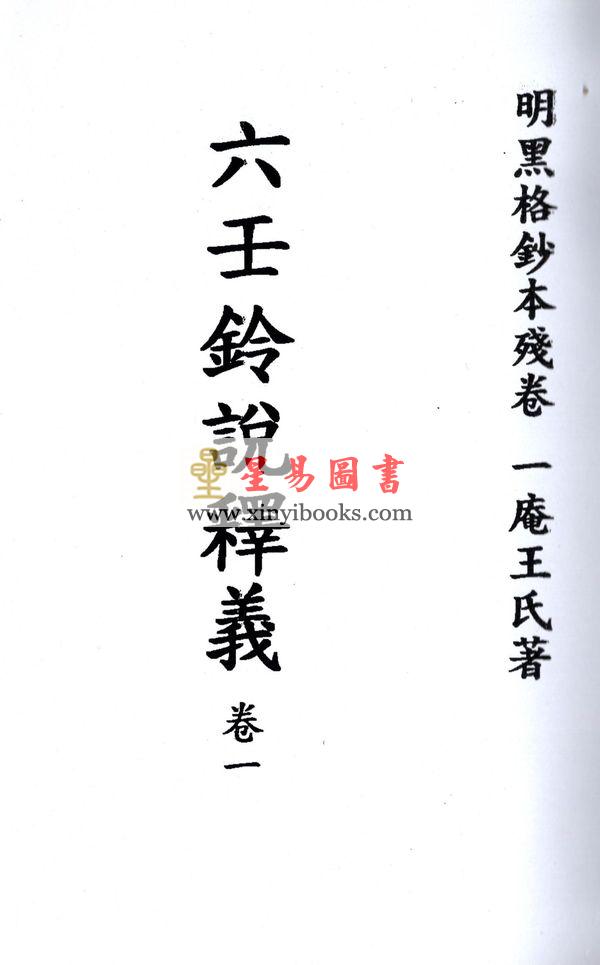 明黑格鈔本殘卷 一庵王氏著
六壬鈴說釋義 卷一
星易圖書
www.xinyibooks.com